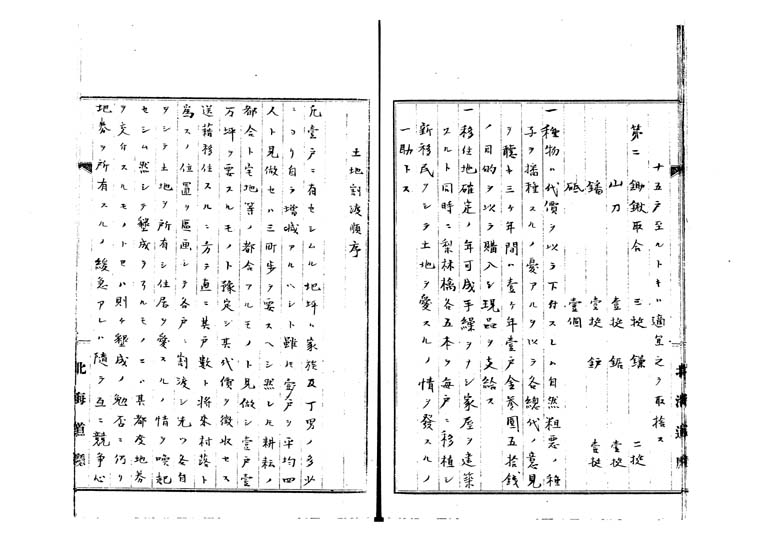 十五戸至ルトキハ適宜之ヲ取捨ス
第二 鋤鍬取合 三挺 鎌 二挺
山刀 壹挺 鋸 壹挺
鐇 壹挺 鈩 壹挺
砥 壹個
一種物ハ代價ヲ以テ下付スレハ自然粗悪ノ種
子ヲ播種スルノ憂アルヲ以テ各總代ノ意見
ヲ聴キ三ケ年間ハ壹ケ年壹戸金參圓五拾銭
ノ目的ヲ以テ購入シ現品ヲ支給ス
一移住地確定ノ年可成手繰ヲナシ家屋ヲ建築
スルト同時ニ梨林檎各五本ヲ毎戸ニ移植シ
新移民ヲシテ土地ヲ愛スルノ情ヲ發スルノ
一助トス
北海道廳
土地割渡順序
凡壹戸ニ有セシムル地坪ハ家族及丁男ノ多少
ニヨリ自ラ増減アルヘシト雖モ壹戸ヲ平均四
人ト見做セハ三町歩ヲ要スヘシ然レトモ耕耘ノ
都合ト宅地等ノ都合アルモノト見做シ壹戸壹
万坪ヲ要スルモノト豫定シ其代價ヲ徴収セス
送籍移住スルニ方テ直ニ其戸數ト将来村落ト
為スノ位置ヲ區画シテ各戸ニ割渡シ先ツ各自
ヲシテ土地ヲ所有シ住居ヲ愛スルノ情ヲ喚起
セシム然シテ墾成ヲナルモノニハ其都度地券
ヲ交付スルモノトセハ則チ墾成ノ勉否ニ何リ
地券ヲ所有スルノ緩急アレハ随テ互ニ競争心
北海道廳